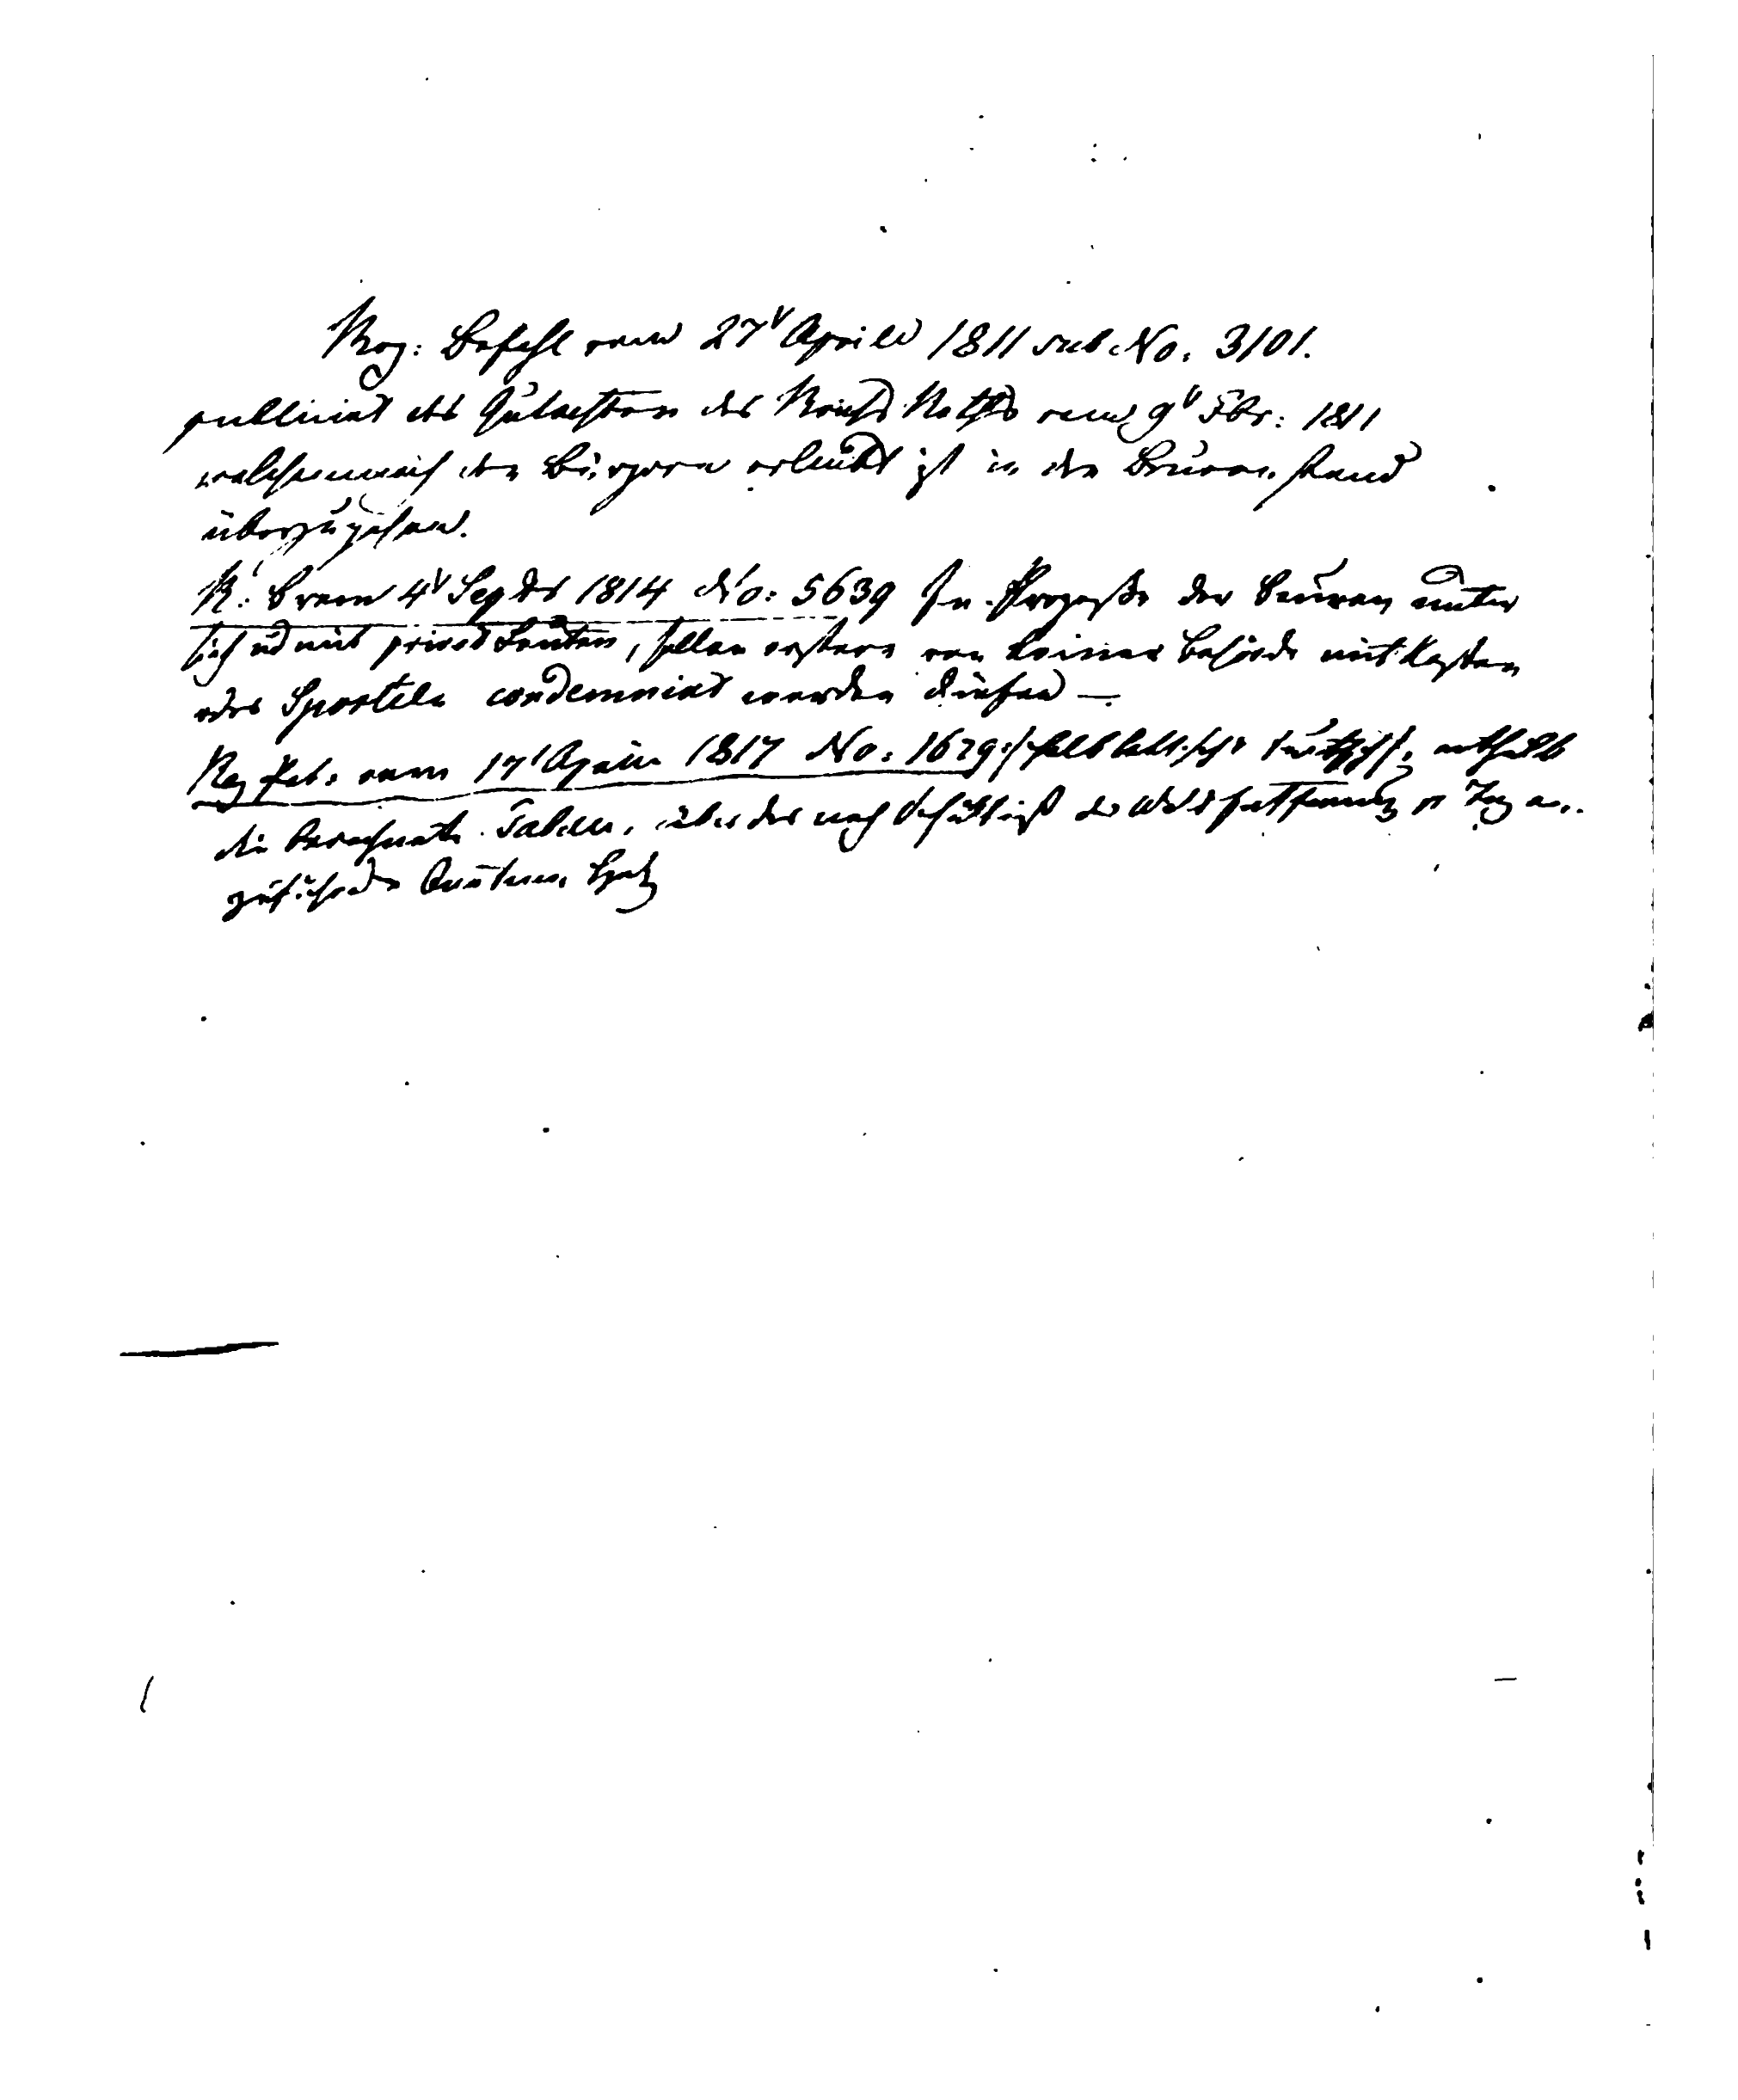 Reg: Befehl vom 27t Aprill 1811 sub No. 3101.
publiciret das Gutachten des Reichs Raths vom 9t Fbr: 1811
welchemnach den Bürgern erlaubt ist in den Bauern stand
überzugehen.
R: B vom 4t Septbr 1814 No: 5639 In Prozeße der Bauern unter
sich und mit privat Leuten, sollen erstere von keiner Behörde mit Kosten
oder Sporteln condemniret werden dürfen —
Reg Pat: vom 17t April 1817 No: 1629 enthält
die berechnete Tabelle, über das nach der
zuführende Quantum Holz